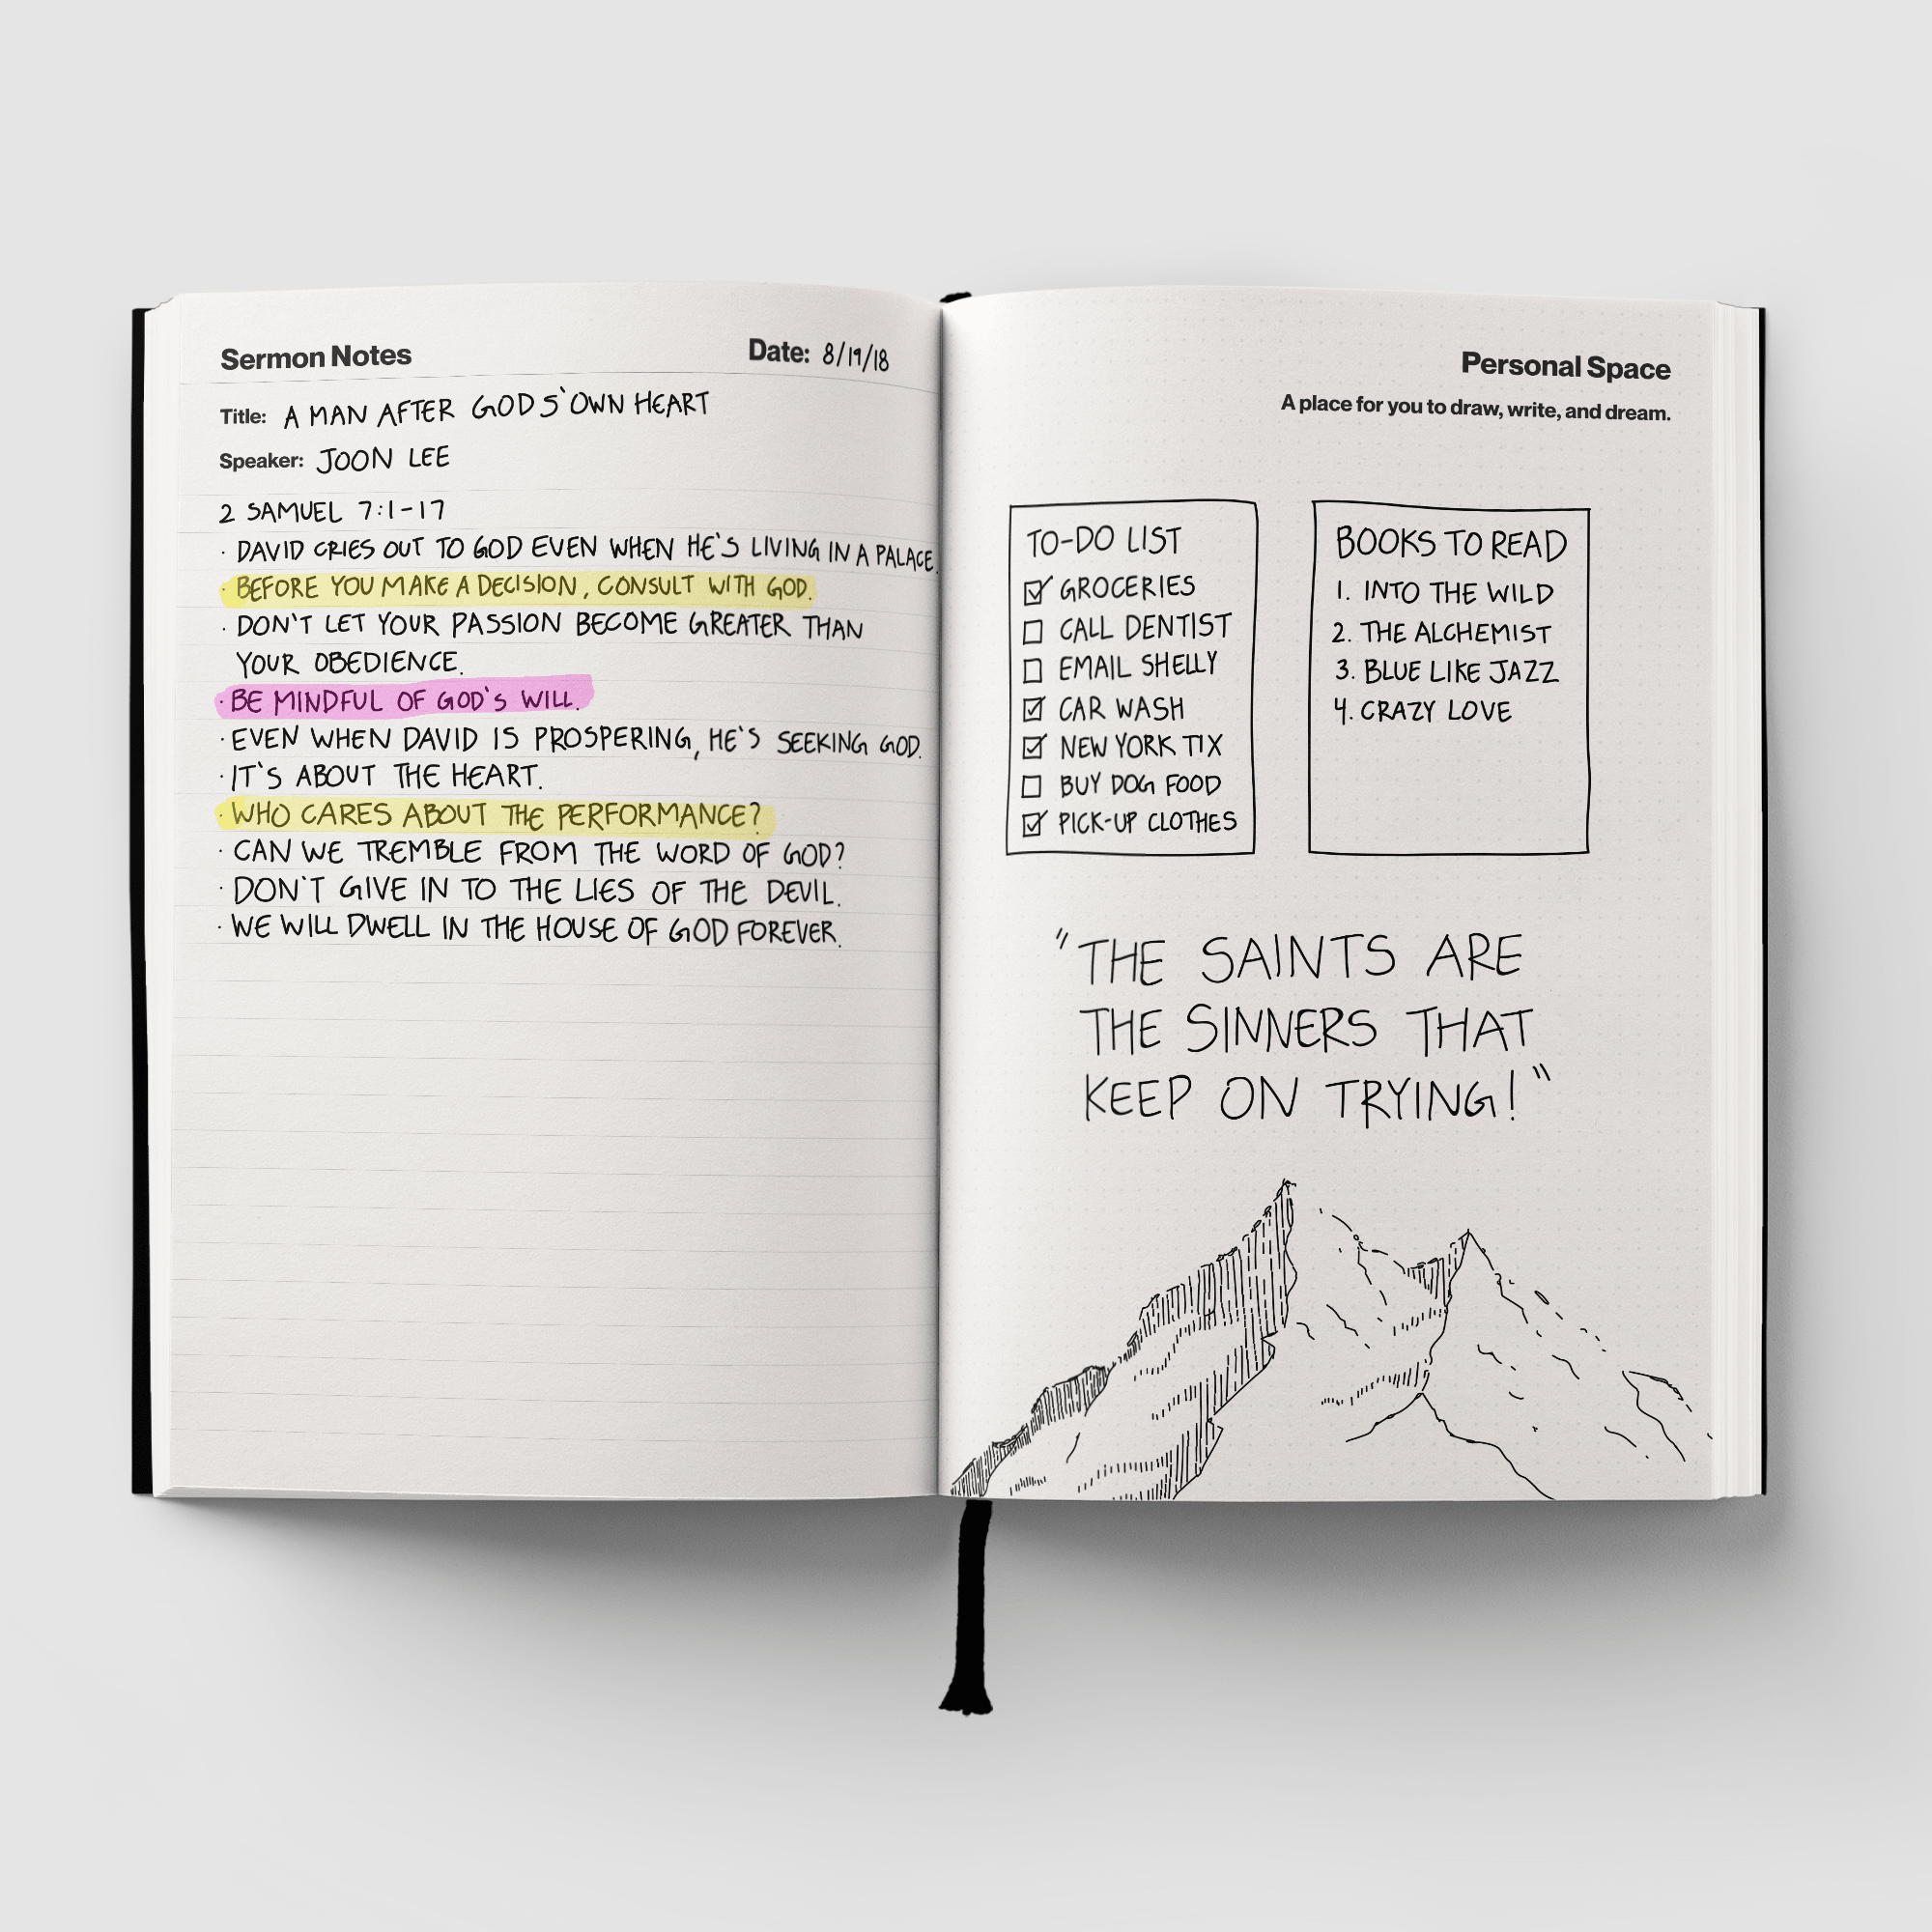 Sermon Notes
Date: 8/19/18
Title: A MAN AFTER GODS' OWN HEART
Speaker: JOON LEE
2 SAMUEL 7:1-17
· DAVID CRIES OUT TO GOD EVEN WHEN HE'S LIVING IN A PALACE.
· BEFORE YOU MAKE A DECISION, CONSULT WITH GOD.
· DON'T LET YOUR PASSION BECOME GREATER THAN
YOUR OBEDIENCE.
· BE MINDFUL OF GOD'S WILL.
· EVEN WHEN DAVID IS PROSPERING, HE'S SEEKING GOD.
· IT'S ABOUT THE HEART.
· WHO CARES ABOUT THE PERFORMANCE?
· CAN WE TREMBLE FROM THE WORD OF GOD?
· DON'T GIVE IN TO THE LIES OF THE DEVIL.
· WE WILL DWELL IN THE HOUSE OF GOD FOREVER.
Personal Space
A place for you to draw, write, and dream.
TO-DO LIST
☑ GROCERIES
☐ CALL DENTIST
☐ EMAIL SHELLY
☑ CAR WASH
☑ NEW YORK TIX
☐ BUY DOG FOOD
☑ PICK-UP CLOTHES
BOOKS TO READ
1. INTO THE WILD
2. THE ALCHEMIST
3. BLUE LIKE JAZZ
4. CRAZY LOVE
"THE SAINTS ARE
THE SINNERS THAT
KEEP ON TRYING!"